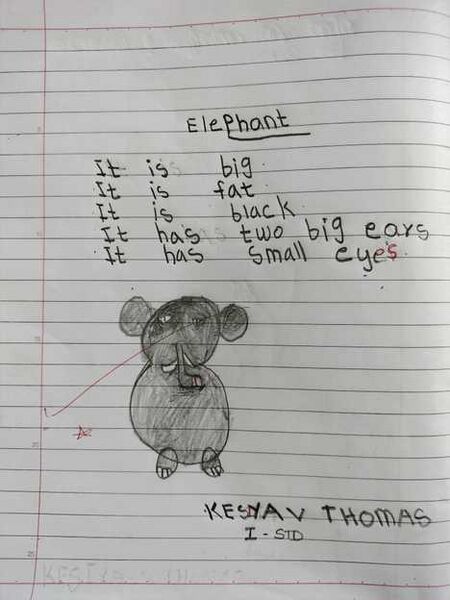 Elephant
It is big
It is fat
It is black
It has two big ears
It has small eyes
KESHAV THOMAS
I - STD